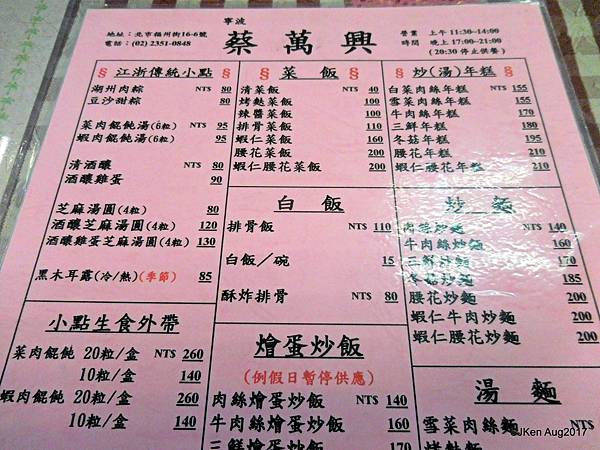 寧波
蔡萬興
地址：北市福州街16-6號
電話：(02) 2351-0848
營業 上午 11:30~14:00
時間 晚上 17:00~21:00
(20:30 停止供餐)
§ 江浙傳統小點 §
湖州肉粽 NT$ 80
豆沙甜粽 80
菜肉餛飩湯(6粒) NT$ 95
蝦肉餛飩湯(6粒) 95
清酒釀 NT$ 80
酒釀雞蛋 90
芝麻湯圓(4粒) 80
酒釀芝麻湯圓(4粒) 120
酒釀雞蛋芝麻湯圓(4粒) 130
黑木耳露(冷/熱)(季節) 85
小點生食外帶
菜肉餛飩 20粒/盒 NT$ 260
10粒/盒 140
蝦肉餛飩 20粒/盒 260
10粒/盒 140
§ 菜飯 §
清菜飯 NT$ 40
烤麩菜飯 100
辣醬菜飯 100
排骨菜飯 110
蝦仁菜飯 160
腰花菜飯 200
蝦仁腰花菜飯 200
白飯
排骨飯 NT$ 110
白飯／碗 15
酥炸排骨 NT$ 80
燴蛋炒飯
(例假日暫停供應)
肉絲燴蛋炒飯 140
牛肉絲燴蛋炒飯 160
三鮮燴蛋炒飯 170
§ 炒(湯)年糕 §
白菜肉絲年糕 NT$ 155
雪菜肉絲年糕 155
牛肉絲年糕 170
三鮮年糕 180
冬菇年糕 195
腰花年糕 210
蝦仁腰花年糕 210
炒麵
肉絲炒麵 NT$ 140
牛肉絲炒麵 160
三鮮炒麵 170
冬菇炒麵 185
腰花炒麵 200
蝦仁牛肉炒麵 200
蝦仁腰花炒麵 200
湯麵
雪菜肉絲麵 NT$
烤麩麵
©JKen Aug2017